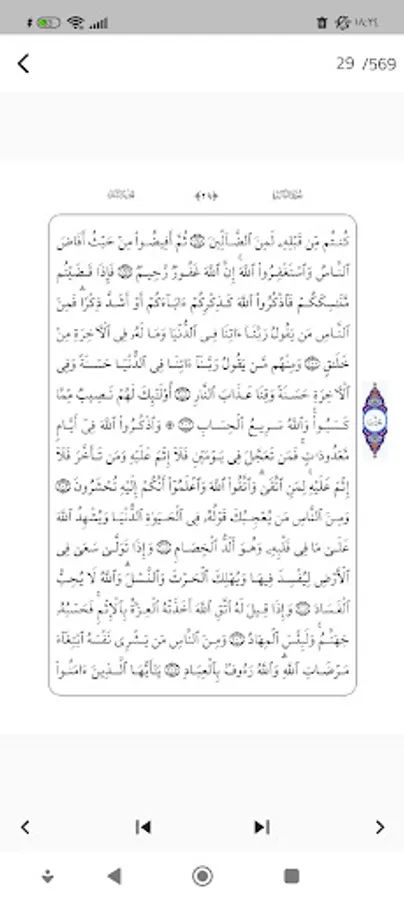 ١٨:٢٤
29 /569
﴿٢٩﴾
كُنتُم مِّن قَبْلِهِۦ لَمِنَ ٱلضَّآلِّينَ ثُمَّ أَفِيضُوا۟ مِنْ حَيْثُ أَفَاضَ
ٱلنَّاسُ وَٱسْتَغْفِرُوا۟ ٱللَّهَ إِنَّ ٱللَّهَ غَفُورٌ رَّحِيمٌ فَإِذَا قَضَيْتُم
مَّنَـٰسِكَكُمْ فَٱذْكُرُوا۟ ٱللَّهَ كَذِكْرِكُمْ ءَابَآءَكُمْ أَوْ أَشَدَّ ذِكْرًا فَمِنَ
ٱلنَّاسِ مَن يَقُولُ رَبَّنَآ ءَاتِنَا فِى ٱلدُّنْيَا وَمَا لَهُۥ فِى ٱلْـَٔاخِرَةِ مِنْ
خَلَـٰقٍ وَمِنْهُم مَّن يَقُولُ رَبَّنَآ ءَاتِنَا فِى ٱلدُّنْيَا حَسَنَةً وَفِى
ٱلْـَٔاخِرَةِ حَسَنَةً وَقِنَا عَذَابَ ٱلنَّارِ أُو۟لَـٰٓئِكَ لَهُمْ نَصِيبٌ مِّمَّا
كَسَبُوا۟ وَٱللَّهُ سَرِيعُ ٱلْحِسَابِ ۞ وَٱذْكُرُوا۟ ٱللَّهَ فِىٓ أَيَّامٍ
مَّعْدُودَٰتٍ فَمَن تَعَجَّلَ فِى يَوْمَيْنِ فَلَآ إِثْمَ عَلَيْهِ وَمَن تَأَخَّرَ فَلَآ
إِثْمَ عَلَيْهِ لِمَنِ ٱتَّقَىٰ وَٱتَّقُوا۟ ٱللَّهَ وَٱعْلَمُوٓا۟ أَنَّكُمْ إِلَيْهِ تُحْشَرُونَ
وَمِنَ ٱلنَّاسِ مَن يُعْجِبُكَ قَوْلُهُۥ فِى ٱلْحَيَوٰةِ ٱلدُّنْيَا وَيُشْهِدُ ٱللَّهَ
عَلَىٰ مَا فِى قَلْبِهِۦ وَهُوَ أَلَدُّ ٱلْخِصَامِ وَإِذَا تَوَلَّىٰ سَعَىٰ فِى
ٱلْأَرْضِ لِيُفْسِدَ فِيهَا وَيُهْلِكَ ٱلْحَرْثَ وَٱلنَّسْلَ وَٱللَّهُ لَا يُحِبُّ
ٱلْفَسَادَ وَإِذَا قِيلَ لَهُ ٱتَّقِ ٱللَّهَ أَخَذَتْهُ ٱلْعِزَّةُ بِٱلْإِثْمِ فَحَسْبُهُۥ
جَهَنَّمُ وَلَبِئْسَ ٱلْمِهَادُ وَمِنَ ٱلنَّاسِ مَن يَشْرِى نَفْسَهُ ٱبْتِغَآءَ
مَرْضَاتِ ٱللَّهِ وَٱللَّهُ رَءُوفٌۢ بِٱلْعِبَادِ يَـٰٓأَيُّهَا ٱلَّذِينَ ءَامَنُوا۟